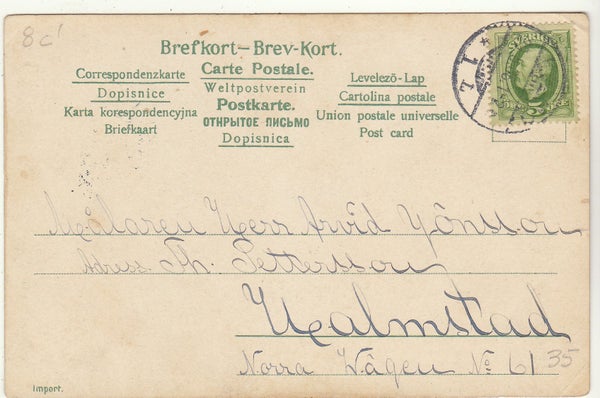 8c
Brefkort–Brev-Kort.
Correspondenzkarte
Dopisnice
Karta korespondencyjna
Briefkaart
Carte Postale.
Weltpostverein
Postkarte.
ОТКРЫТОЕ ПИСЬМО
Dopisnica
Levelező-Lap
Cartolina postale
Union postale universelle
Post card
SVERIGE
Målaren Herr Arvid Jönsson
Adress. Th. Pettersson
Halmstad
Norra Vägen No 61
35
Import.